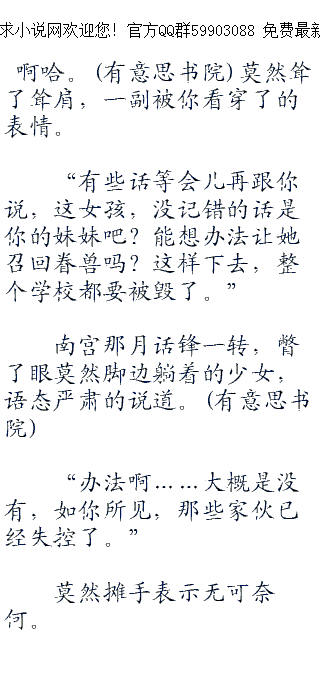 求小说网欢迎您！官方QQ群59903088 免费最新
啊哈。(有意思书院) 莫然耸
了耸肩，一副被你看穿了的
表情。
“有些话等会儿再跟你
说，这女孩，没记错的话是
你的妹妹吧？能想办法让她
召回眷兽吗？这样下去，整
个学校都要被毁了。”
南宫那月话锋一转，瞥
了眼莫然脚边躺着的少女，
语态严肃的说道。(有意思书
院)
“办法啊……大概是没
有，如你所见，那些家伙已
经失控了。”
莫然摊手表示无可奈
何。